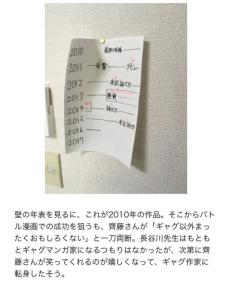 2010
2011 受賞 デビュー
2012
2013
2014
2015
2016
2017
壁の年表を見るに、これが2010年の作品。そこからバト
ル漫画での成功を狙うも、齊藤さんが「ギャグ以外まっ
たくおもしろくない」と一刀両断。長谷川先生はもとも
とギャグマンガ家になるつもりはなかったが、次第に齊
藤さんが笑ってくれるのが嬉しくなって、ギャグ作家に
転身したそう。